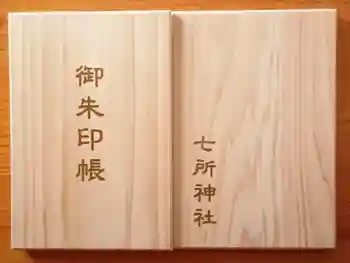 御朱印帳
七所神社